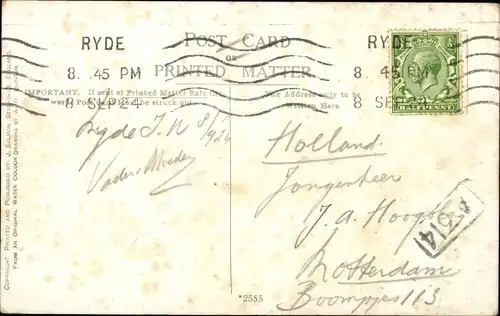 RYDE
8. 45 PM
8 SEP 24
POST CARD
OR
PRINTED MATTER.
RYDE
8. 45 PM
8 SEP 24
HALFPENNY
IMPORTANT. If sent at Printed Matter Rate the
word Post Card must be struck out.
The Address only to be
Written Here.
Ryde I.W 8/9/24
Vader & Moeder
Holland.
Jongenheer
J. A.
Rotterdam
Boompjes 113
A314
*2555
COPYRIGHT. PRINTED AND PUBLISHED BY J. SALMON,
FROM AN ORIGINAL WATER COLOUR DRAWING